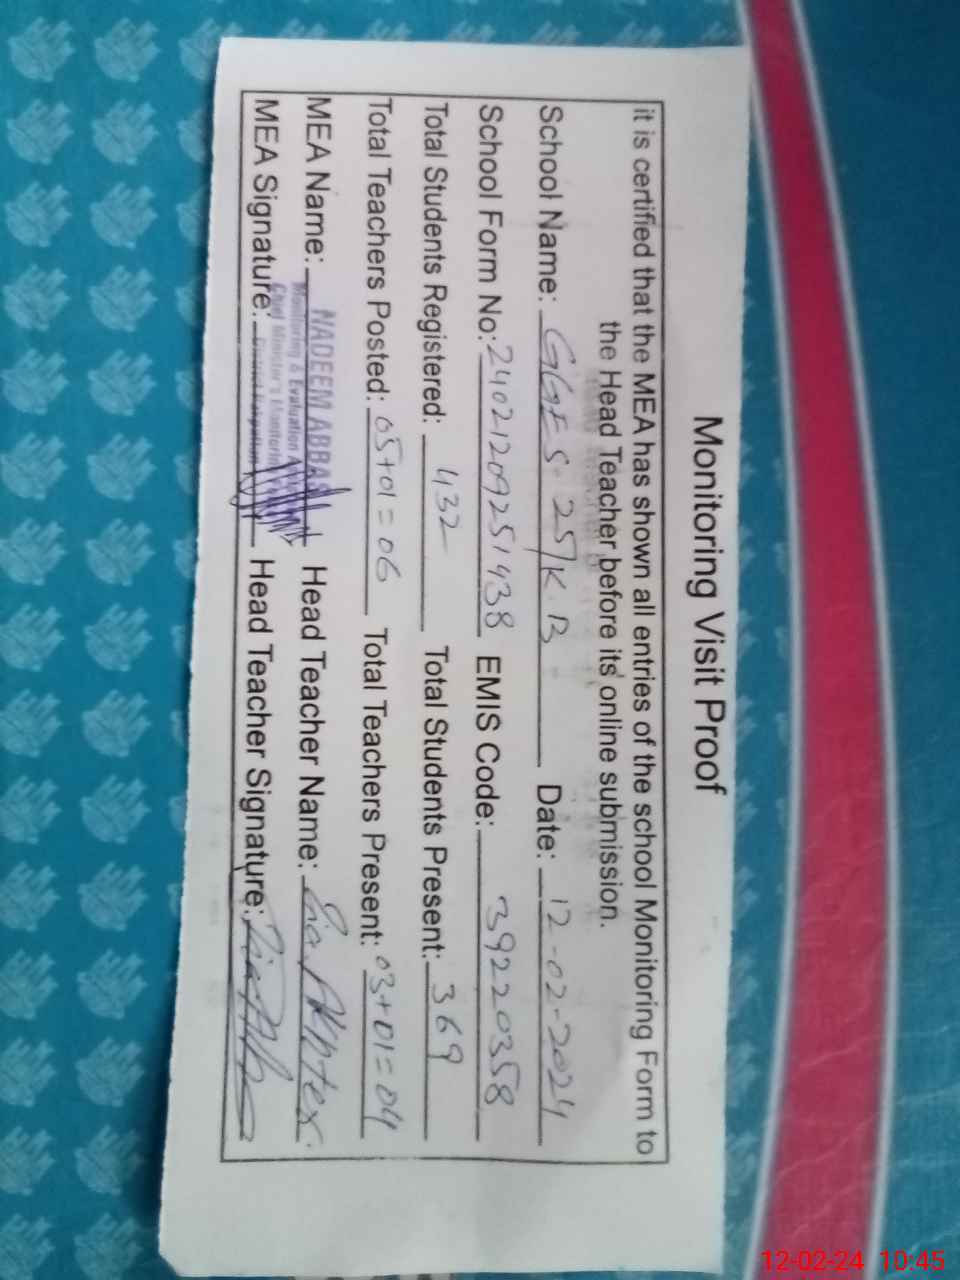 Monitoring Visit Proof
it is certified that the MEA has shown all entries of the school Monitoring Form to
the Head Teacher before its online submission.
School Name: GGES 25/K.B Date: 12-02-2024
School Form No: 24021209251438 EMIS Code: 39220358
Total Students Registered: 432 Total Students Present: 369
Total Teachers Posted: 05+01=06 Total Teachers Present: 03+01=04
MEA Name: NADEEM ABBAS Head Teacher Name: Zia Akhter
Monitoring & Evaluation
Chief Minister's Monitoring
MEA Signature: Head Teacher Signature:
12-02-24 10:45